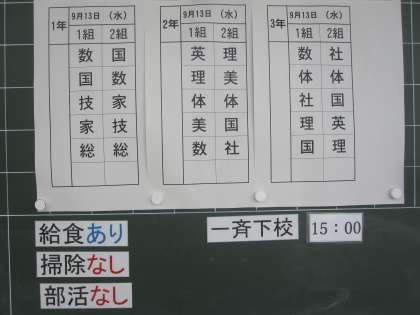 1年 9月13日 (水)
1組 2組
数 国
国 数
技 家
家 技
総 総
2年 9月13日 (水)
1組 2組
英 理
理 美
体 体
美 国
数 社
3年 9月13日 (水)
1組 2組
数 社
体 体
社 国
理 英
国 理
給食あり
掃除なし
部活なし
一斉下校 15:00